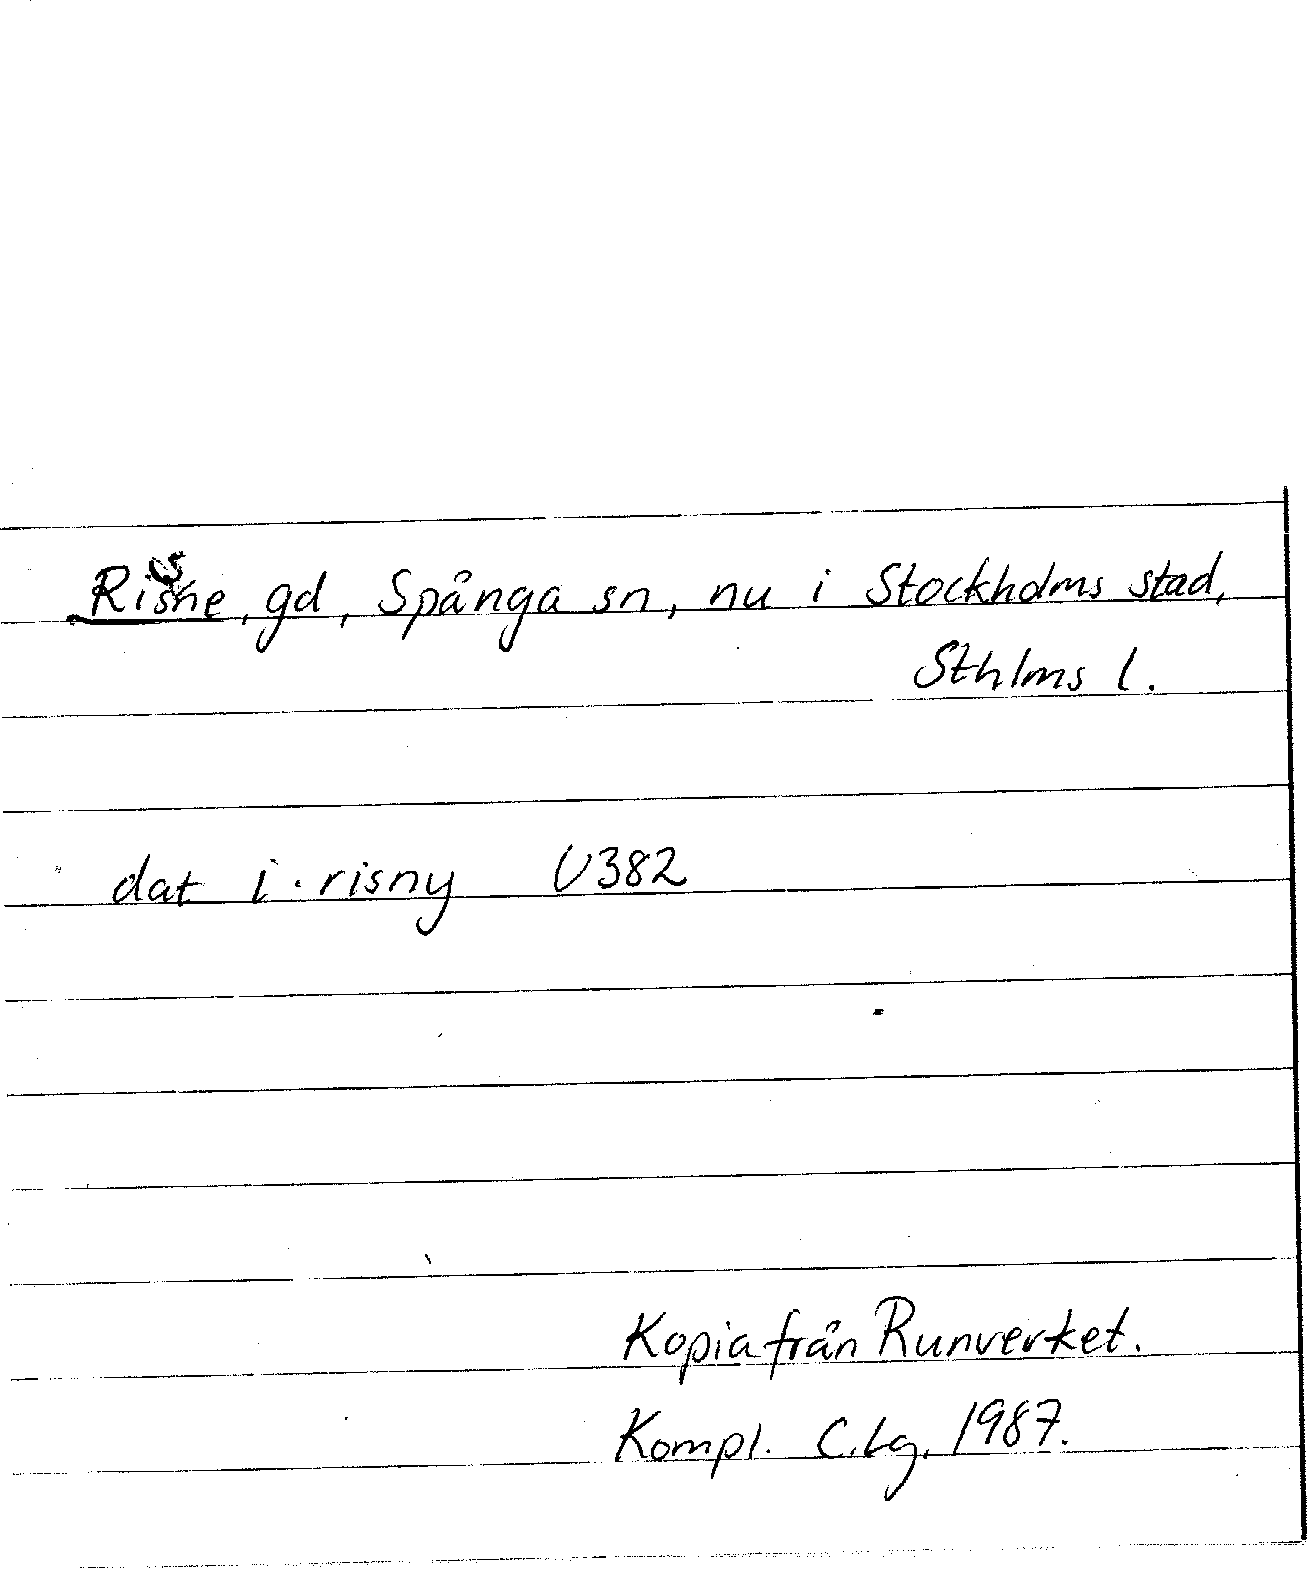 Risne, gd, Spånga sn, nu i Stockholms stad,
Sthlms l.
dat i · risny U382
Kopia från Runverket.
Kompl. C.Lg. 1987.